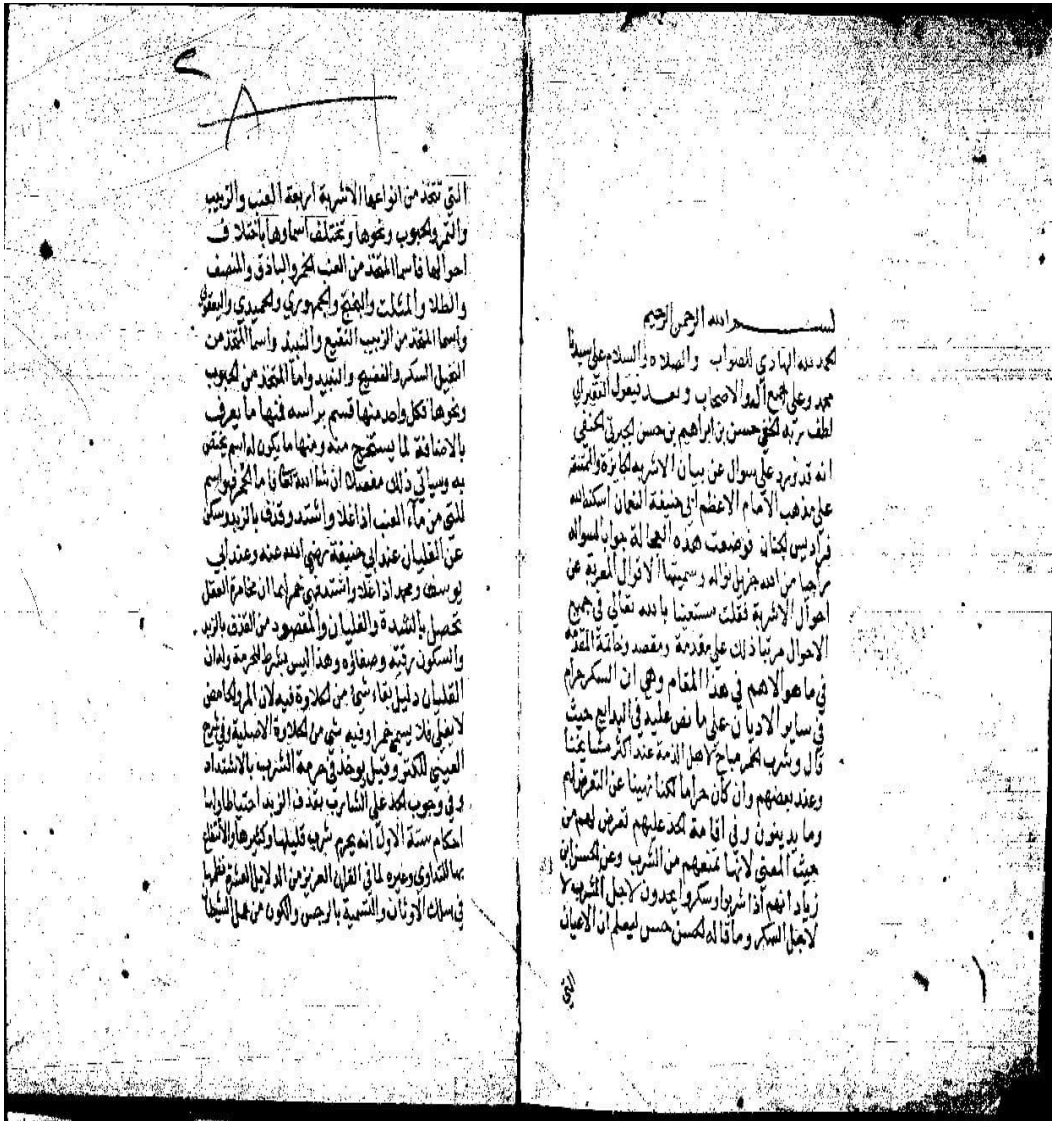 بسم الله الرحمن الرحيم
الحمد لله الهادي للصواب والصلاه والسلام على سيدنا
محمد وعلى جميع آله والاصحاب وبعد فيقول الفقير الى
لطف ربه الخفي حسن بن ابراهيم بن حسن الجبرتي الحنفي
انه قد ورد علي سوال عن بيان الاشربه الجايزة
على مذهب الامام الاعظم ابي حنيفة النعمان اسكنه الله
فراديس الجنان فوضعت هذه العجالة جوابا لسواله
راجيا من الله جزيل نواله وسميتها الاقوال المعربة عن
احوال الاشربة فقلت مستعينا بالله تعالى في جميع
الاحوال مرتبا ذلك على مقدمة ومقصد وخاتمة المقدمة
في ما هو الاهم في هذا المقام وهي ان السكر حرام
في ساير الاديان على ما نص عليه في البدايع حيث
قال وشرب الخمر مباح لاهل الذمة عند اكثر مشايخنا
وعند بعضهم وان كان حراما لكنا نهينا عن التعرض لهم
وما يدينون وفي اقامة الحد عليهم تعرض لهم من
حيث المعنى لانها تمنعهم من الشرب وعن الحسن ابن
زياد انهم اذا شربوا وسكروا يحدون لاجل السكر لا
لاجل الشرب وما قاله الحسن حسن ليعلم ان الاعيان
التي
١
٢
التي تتخذ من انواعها الاشربة اربعة العنب والزبيب
والتمر والحبوب ونحوها وتختلف اسماوها باختلاف
احوالها فاسما المتخذ من العنب الخمر والباذق والمنصف
والطلا والمثلث والبختج والجمهوري والحميدي واليعقوبي
واسما المتخذ من الزبيب النقيع والنبيذ واسما المتخذ من
النخيل السكر والفضيخ والنبيذ واما المتخذ من الحبوب
ونحوها فكل واحد منها قسم براسه فمنها ما يعرف
بالاضافة لما يستخرج منه ومنها ما يكون له اسم يختص
به وسياتي ذلك مفصلا ان شا الله تعالى فاما الخمر فهو اسم
للني من مآء العنب اذا غلا واشتد وقذف بالزبد وسكن
عن الغليان عند ابي حنيفة رضي الله عنه وعند ابي
يوسف ومحمد اذا غلا واشتد فهي خمر لهما ان مخامرة العقل
تحصل بالشدة والغليان والمقصود من القذف بالزبد
والسكون رقته وصفاؤه وهذا ليس بشرط للحرمة وله ان
الغليان دليل بقاء شئ من الحلاوة فيه لان المر والحامض
لا يغلي فلا يسمى خمرا وفيه شي من الحلاوة الاصلية وفي شرح
العيني للكنز وقيل يوخذ في حرمة الشرب بالاشتداد
وفي وجوب الحد على الشارب بقذف الزبد احتياطا ولها
احكام ستة الاول انه يحرم شرب قليلها وكثيرها والانتفاع
بها للتداوي وغيره لما في القران العزيز من الدلايل العشرة نظمها
في سلك الاوثان والتسمية بالرجس والكون من عمل الشيطان